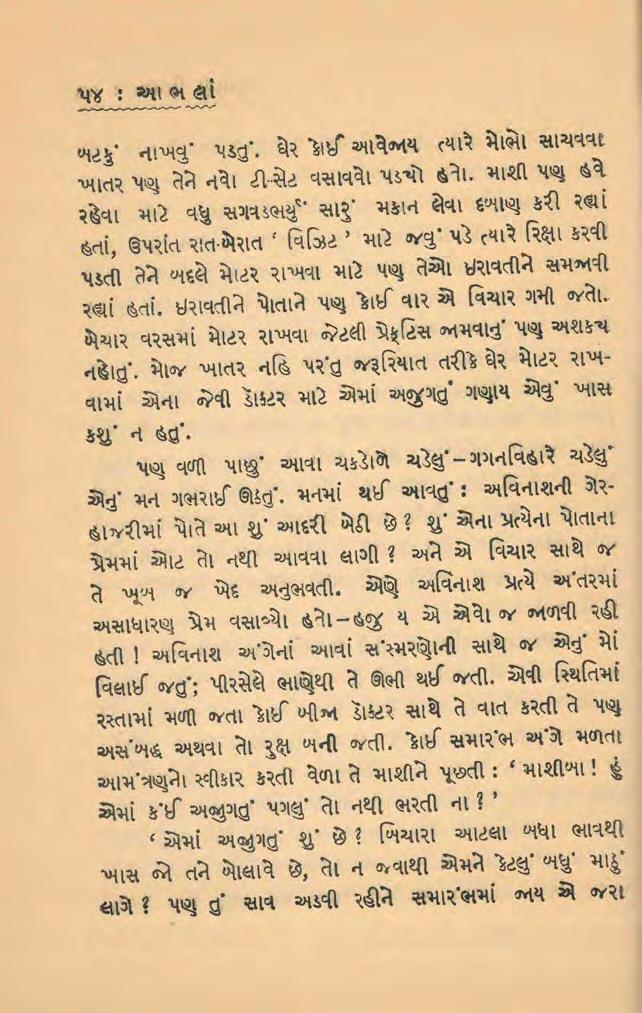 ૫૪ : આભલાં
બટકું નાખવું પડતું. ઘેર કોઈ આવેજાય ત્યારે મોભો સાચવવા
ખાતર પણ તેને નવો ટી-સેટ વસાવવો પડ્યો હતો. માશી પણ હવે
રહેવા માટે વધુ સગવડભર્યું સારું મકાન લેવા દબાણ કરી રહ્યાં
હતાં, ઉપરાંત રાત-બેરાત ‘ વિઝિટ ’ માટે જવું પડે ત્યારે રિક્ષા કરવી
પડતી તેને બદલે મોટર રાખવા માટે પણ તેઓ ઇરાવતીને સમજાવી
રહ્યાં હતાં. ઇરાવતીને પોતાને પણ કોઈ વાર એ વિચાર ગમી જતો.
બેચાર વરસમાં મોટર રાખવા જેટલી પ્રેક્ટિસ જામવાનું પણ અશક્ય
નહોતું. મોજ ખાતર નહિ પરંતુ જરૂરિયાત તરીકે ઘેર મોટર રાખ-
વામાં એના જેવી ડૉક્ટર માટે એમાં અજુગતું ગણાય એવું ખાસ
કશું ન હતું.
પણ વળી પાછું આવા ચકડોળે ચડેલું – ગગનવિહારે ચડેલું
એનું મન ગભરાઈ ઊઠતું. મનમાં થઈ આવતું : અવિનાશની ગેર-
હાજરીમાં પોતે આ શું આદરી બેઠી છે ? શું એના પ્રત્યેના પોતાના
પ્રેમમાં ઓટ તો નથી આવવા લાગી ? અને એ વિચાર સાથે જ
તે ખૂબ જ ખેદ અનુભવતી. એણે અવિનાશ પ્રત્યે અંતરમાં
અસાધારણ પ્રેમ વસાવ્યો હતો – હજુ ય એ એવો જ જાળવી રહી
હતી ! અવિનાશ અંગેનાં આવાં સંસ્મરણોની સાથે જ એનું મોં
વિલાઈ જતું; પીરસેલે ભાણેથી તે ઊભી થઈ જતી. એવી સ્થિતિમાં
રસ્તામાં મળી જતા કોઈ બીજા ડૉક્ટર સાથે તે વાત કરતી તે પણ
અસંબદ્ધ અથવા તો રુક્ષ બની જતી. કોઈ સમારંભ અંગે મળતા
આમંત્રણનો સ્વીકાર કરતી વેળા તે માશીને પૂછતી : ‘ માશીબા ! હું
એમાં કંઈ અજુગતું પગલું તો નથી ભરતી ના ? ’
‘ એમાં અજુગતું શું છે ? બિચારા આટલા બધા ભાવથી
ખાસ જો તને બોલાવે છે, તો ન જવાથી એમને કેટલું બધું માઠું
લાગે ? પણ તું સાવ અડવી રહીને સમારંભમાં જાય એ જરા